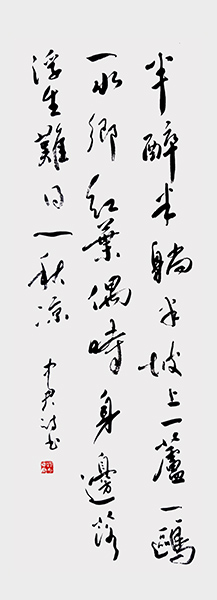 半醉半躺半坡上一蘆一鷗
一水鄉紅葉偶時身邊落
浮生難日一秋凉